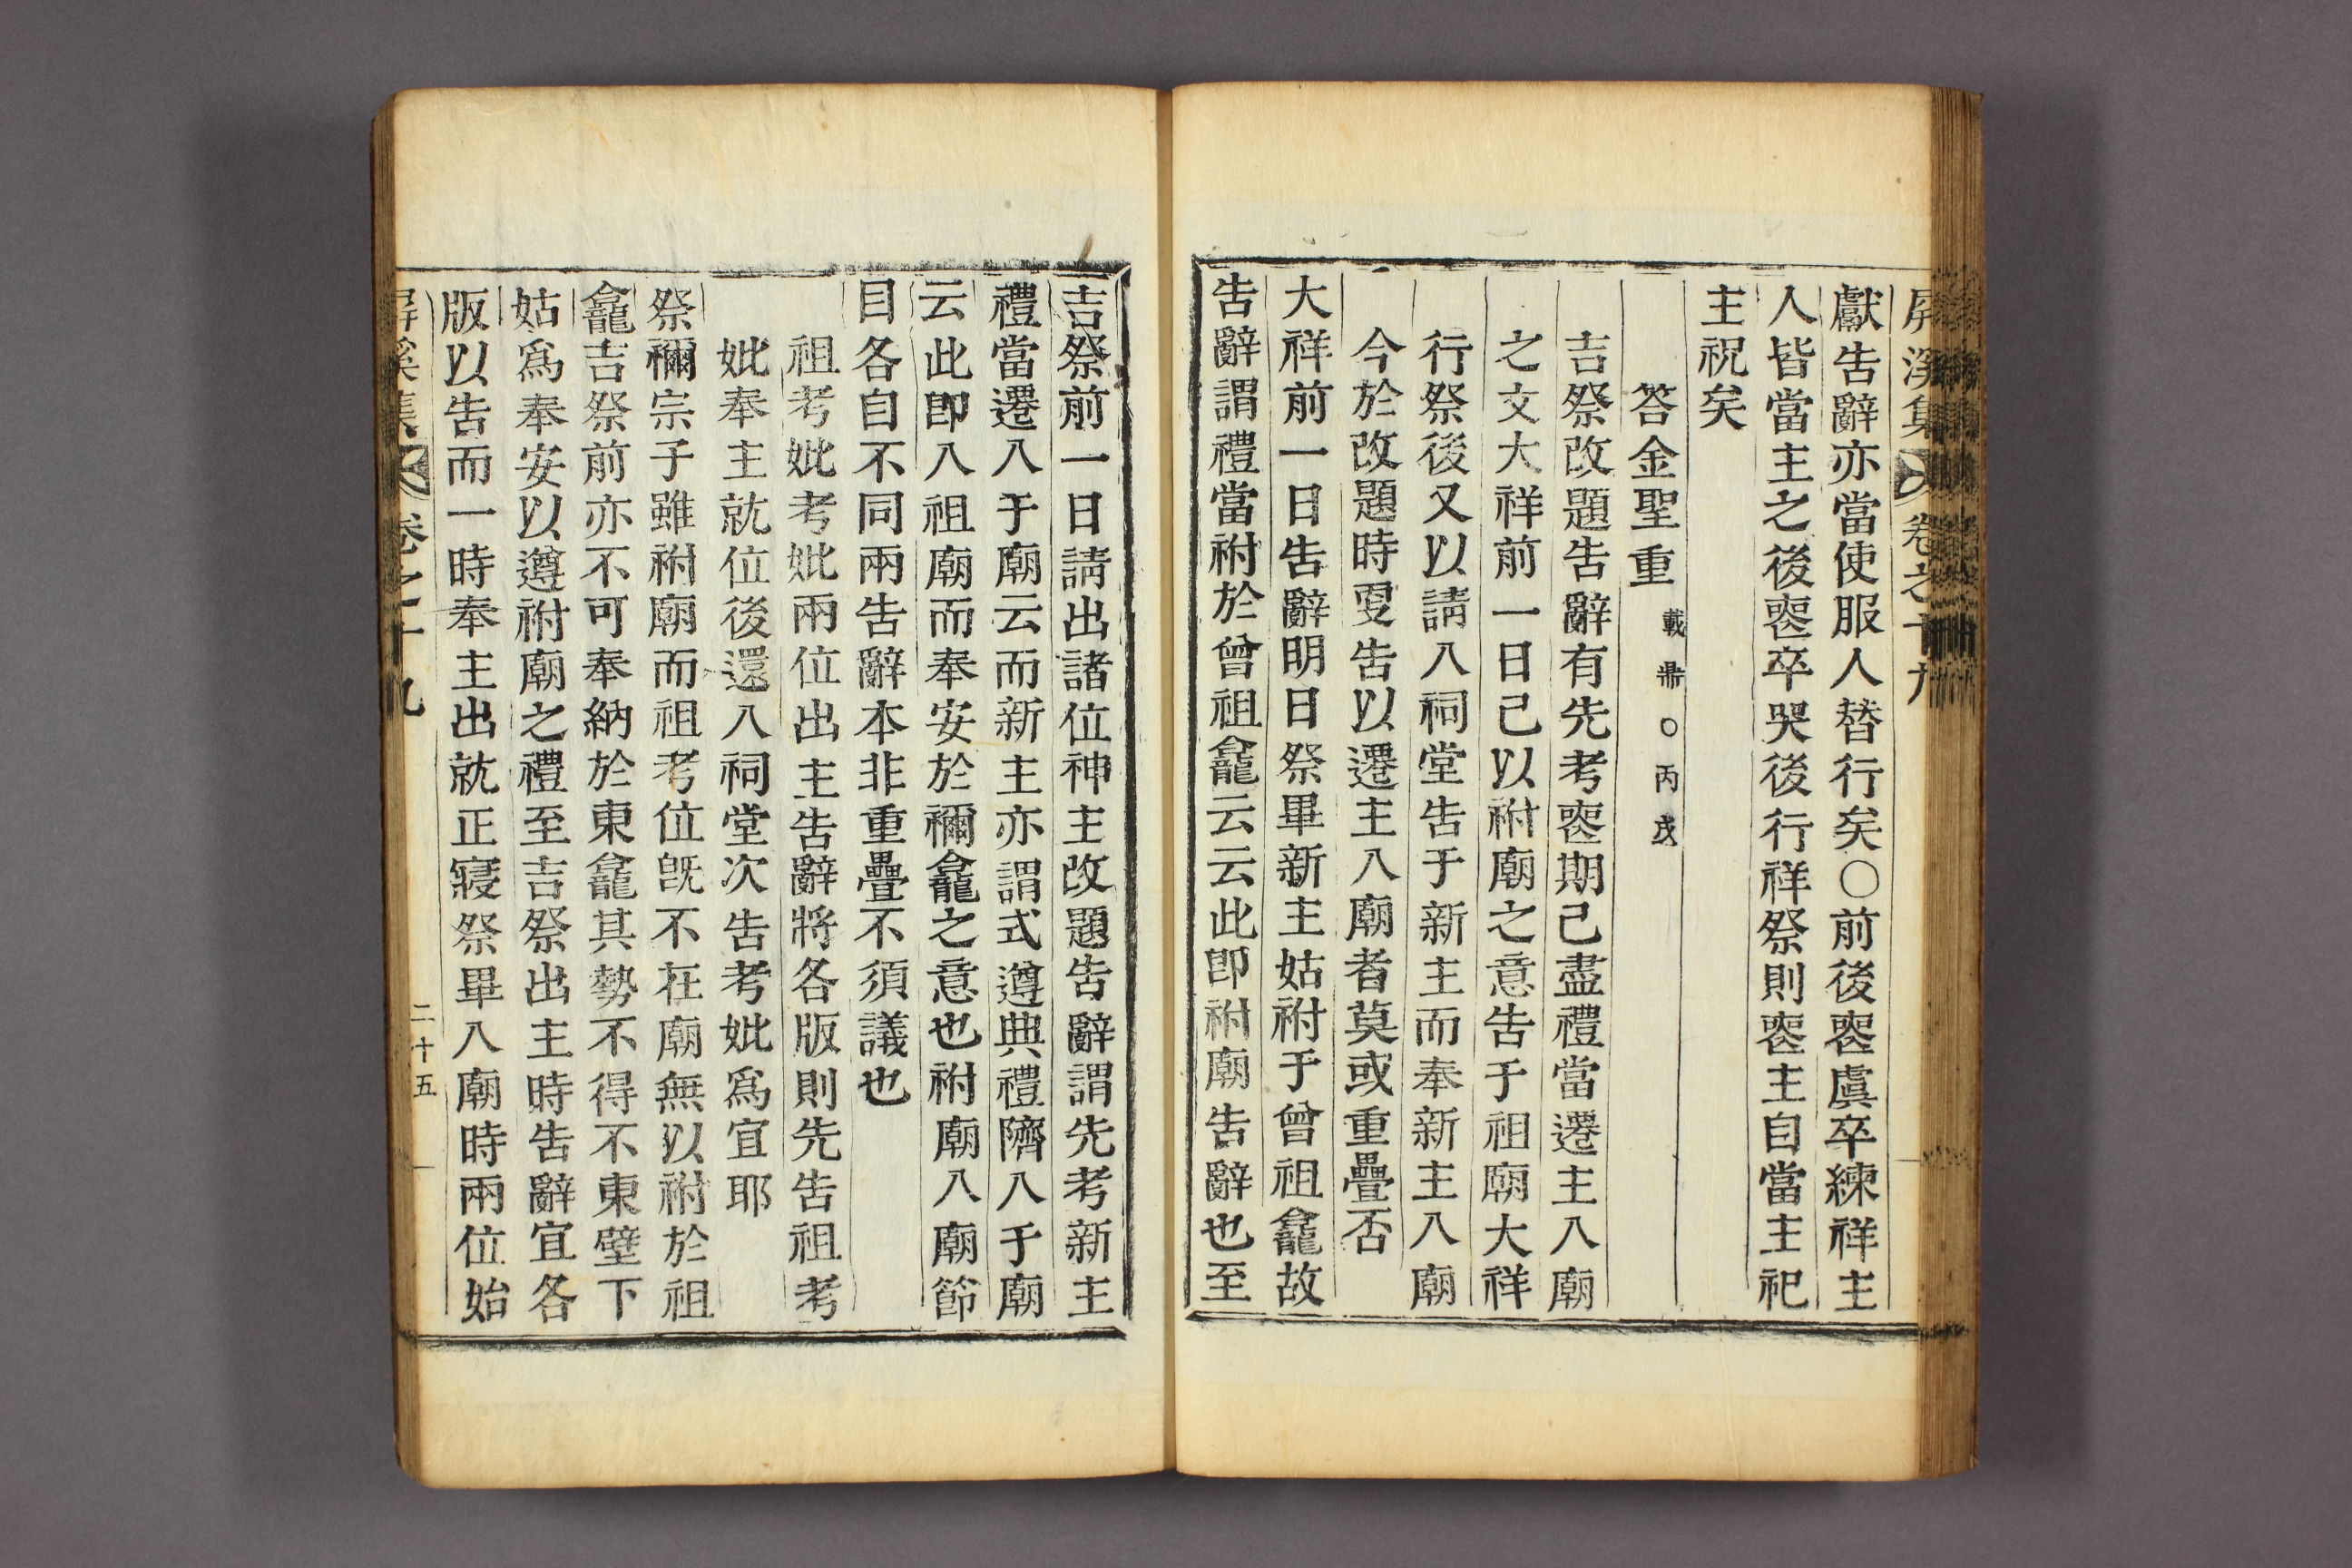 屏溪集 卷之十九
獻告辭亦當使服人替行矣○前後喪虞卒練祥主
人皆當主之後喪卒哭後行祥祭則喪主自當主祀
主祝矣
答金聖重 載鼎○丙戌
吉祭改題告辭有先考喪期已盡禮當遷主入廟
之文大祥前一日已以祔廟之意告于祖廟大祥
行祭後又以請入祠堂告于新主而奉新主入廟
今於改題時更告以遷主入廟者莫或重疊否
大祥前一日告辭明日祭畢新主姑祔于曾祖龕故
告辭謂禮當祔於曾祖龕云云此卽祔廟告辭也至
吉祭前一日請出諸位神主改題告辭謂先考新主
禮當遷入于廟云而新主亦謂式遵典禮隮入于廟
云此卽入祖廟而奉安於禰龕之意也祔廟入廟節
目各自不同兩告辭本非重疊不須議也
祖考妣考妣兩位出主告辭將各版則先告祖考
妣奉主就位後還入祠堂次告考妣爲宜耶
祭禰宗子雖祔廟而祖考位旣不在廟無以祔於祖
龕吉祭前亦不可奉納於東龕其勢不得不東壁下
姑爲奉安以遵祔廟之禮至吉祭出主時告辭宜各
版以告而一時奉主出就正寢祭畢入廟時兩位始
屏溪集 卷之十九 二十五